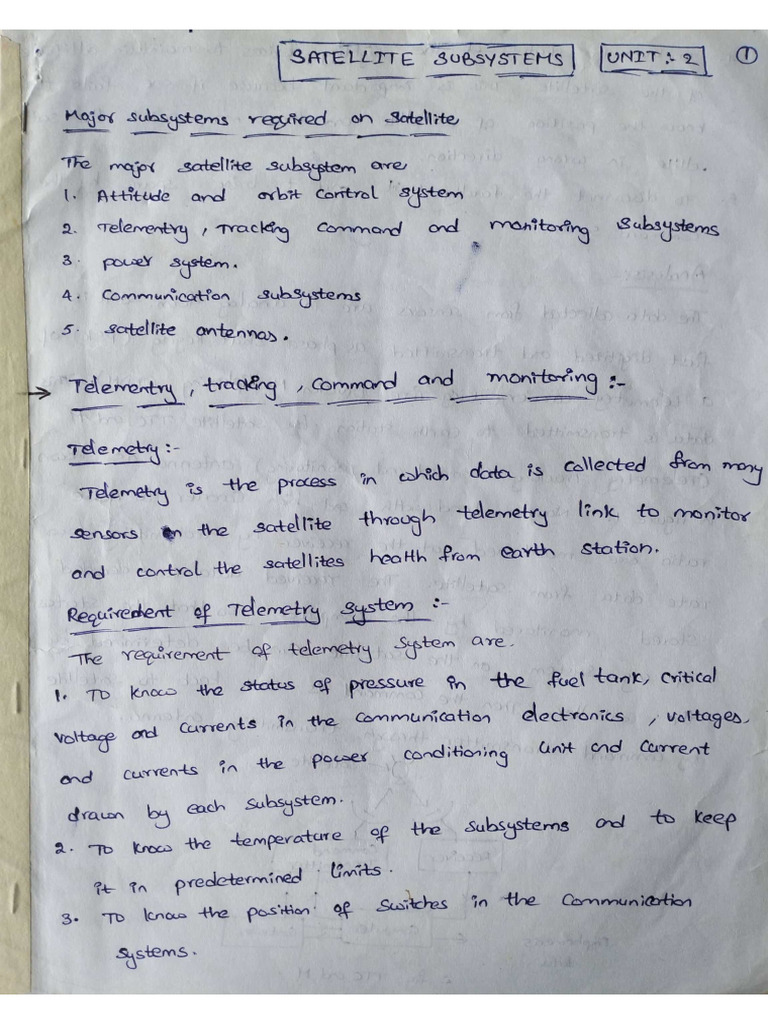 SATELLITE SUBSYSTEMS UNIT:- 2 1
Major subsystems required on satellite
The major satellite subsystem are
1. Attitude and orbit control system
2. Telementry, Tracking command and monitoring subsystems
3. power system.
4. communication subsystems
5. satellite antennas.
→ Telementry, tracking, command and monitoring :-
Telemetry :-
Telemetry is the process in which data is collected from many
sensors on the satellite through telemetry link to monitor
and control the satellites health from earth station.
Requirement of Telemetry system :-
The requirement of telemetry system are.
1. To know the status of pressure in the fuel tank, critical
voltage and currents in the communication electronics, voltages,
and currents in the power conditioning unit and current
drawn by each subsystem.
2. To know the temperature of the subsystems and to keep
it in predetermined limits.
3. To know the position of switches in the communication
systems.